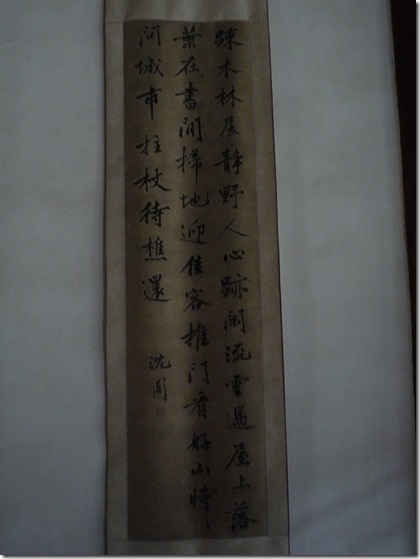 踈木林屋静野人心跡闲流雲過屋上落
葉在書间掃地迎佳客推门看好山時
问城市拄杖待樵還
沈周